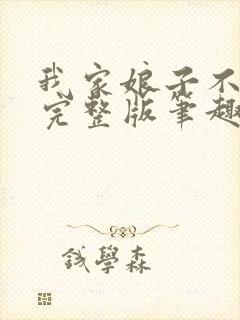 我家娘子不
完整版筆趣
錢學森